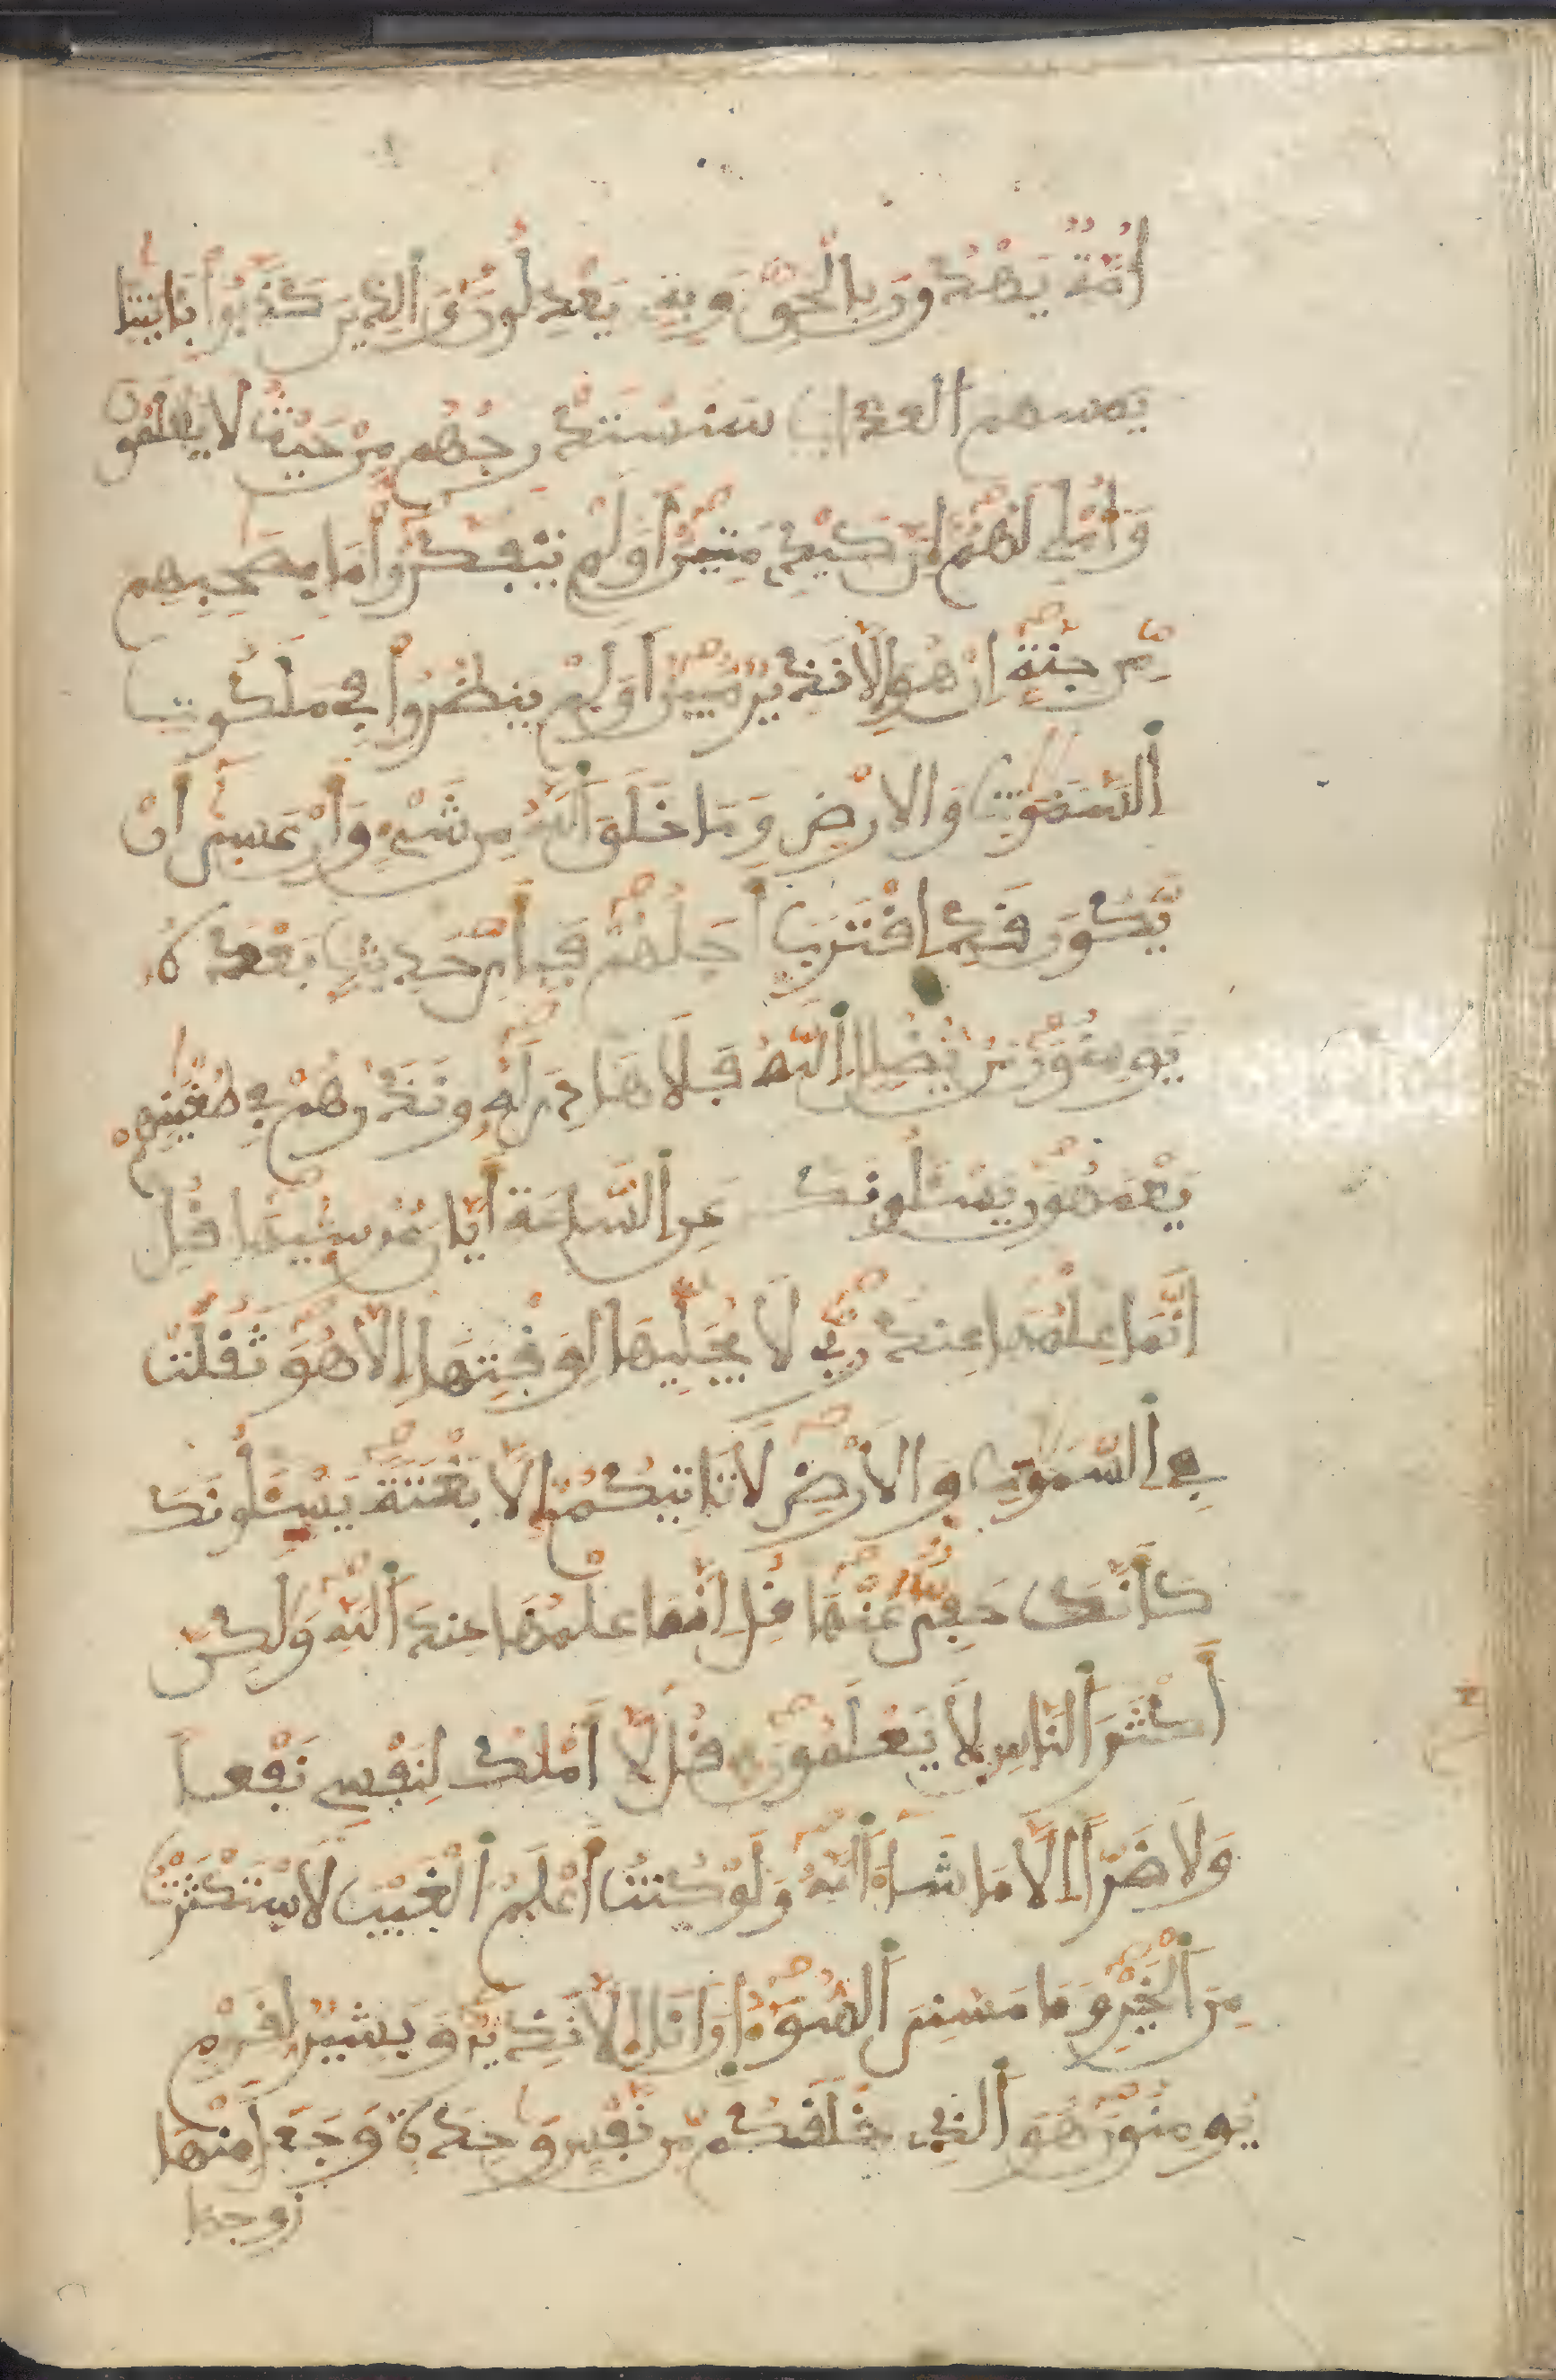 أمة يهدون بالحق وبه يعدلون والذين كذبوا بايتنا
يمسهم العذاب سنستدرجهم من حيث لا يعلمون
وأملي لهم إن كيدي متين أولم يتفكروا ما بصحبهم
من جنة إن هو إلا نذير مبين أولم ينظروا في ملكوت
السموت والارض وما خلق الله من شيء وأن عسى أن
يكون قد اقترب أجلهم فبأي حديث بعده
يومنون من يضلل الله فلا هادي له ونذرهم في طغينهم
يعمهون يسلونك عن الساعة أيان مرسيها قل
إنما علمها عند ربي لا يجليها لوقتها إلا هو ثقلت
في السموت والأرض لا تاتيكم إلا بغتة يسلونك
كأنك حفي عنها قل إنما علمها عند الله ولكن
أكثر الناس لا يعلمون قل لا أملك لنفسي نفعا
ولا ضرا إلا ما شاء الله ولو كنت أعلم الغيب لاستكثرت
من الخير وما مسني السوء انا إلا نذير وبشير لقوم
يومنون هو الذي خلقكم من نفس وحدة وجعل منها
زوجها